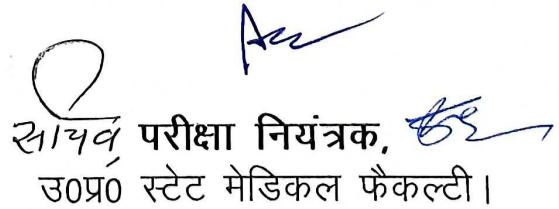 सचिव परीक्षा नियंत्रक,
उ0प्र0 स्टेट मेडिकल फैकल्टी।